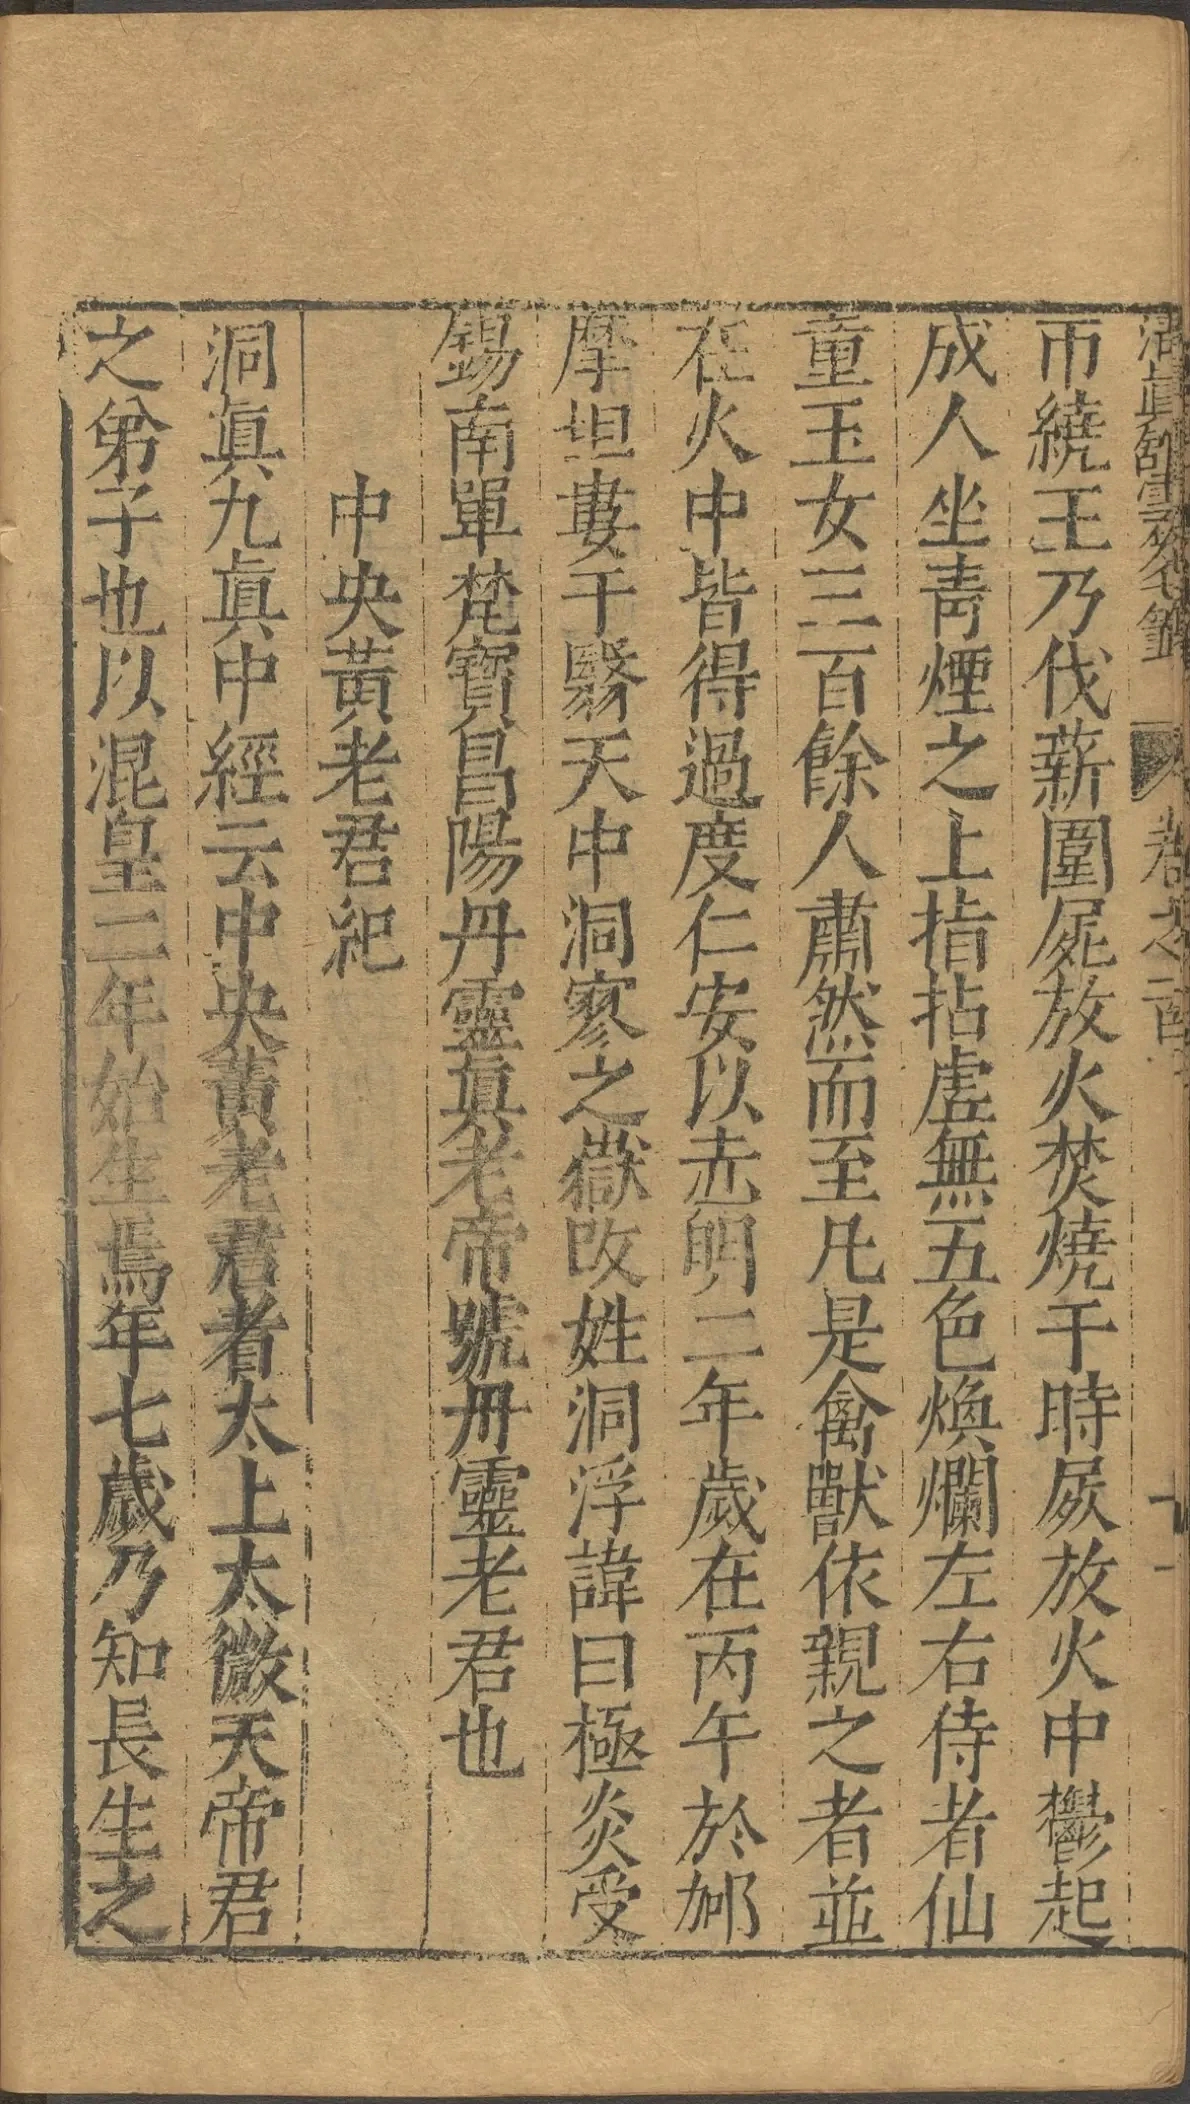 洞眞部雲笈七籤 卷之一百
帀繞王乃伐薪圍屍放火焚燒于時屍放火中鬱起
成人坐靑煙之上指拈虛無五色煥爛左右侍者仙
童玉女三百餘人肅然而至凡是禽獸依親之者並
在火中皆得過度仁安以赤明二年歲在丙午於郍
摩坦婁于翳天中洞寥之嶽改姓洞浮諱曰極炎受
錫南單梵寶昌陽丹靈眞老帝號丹靈老君也
中央黃老君紀
洞眞九眞中經云中央黃老君者太上太微天帝君
之弟子也以混皇二年始生焉年七歲乃知長生之